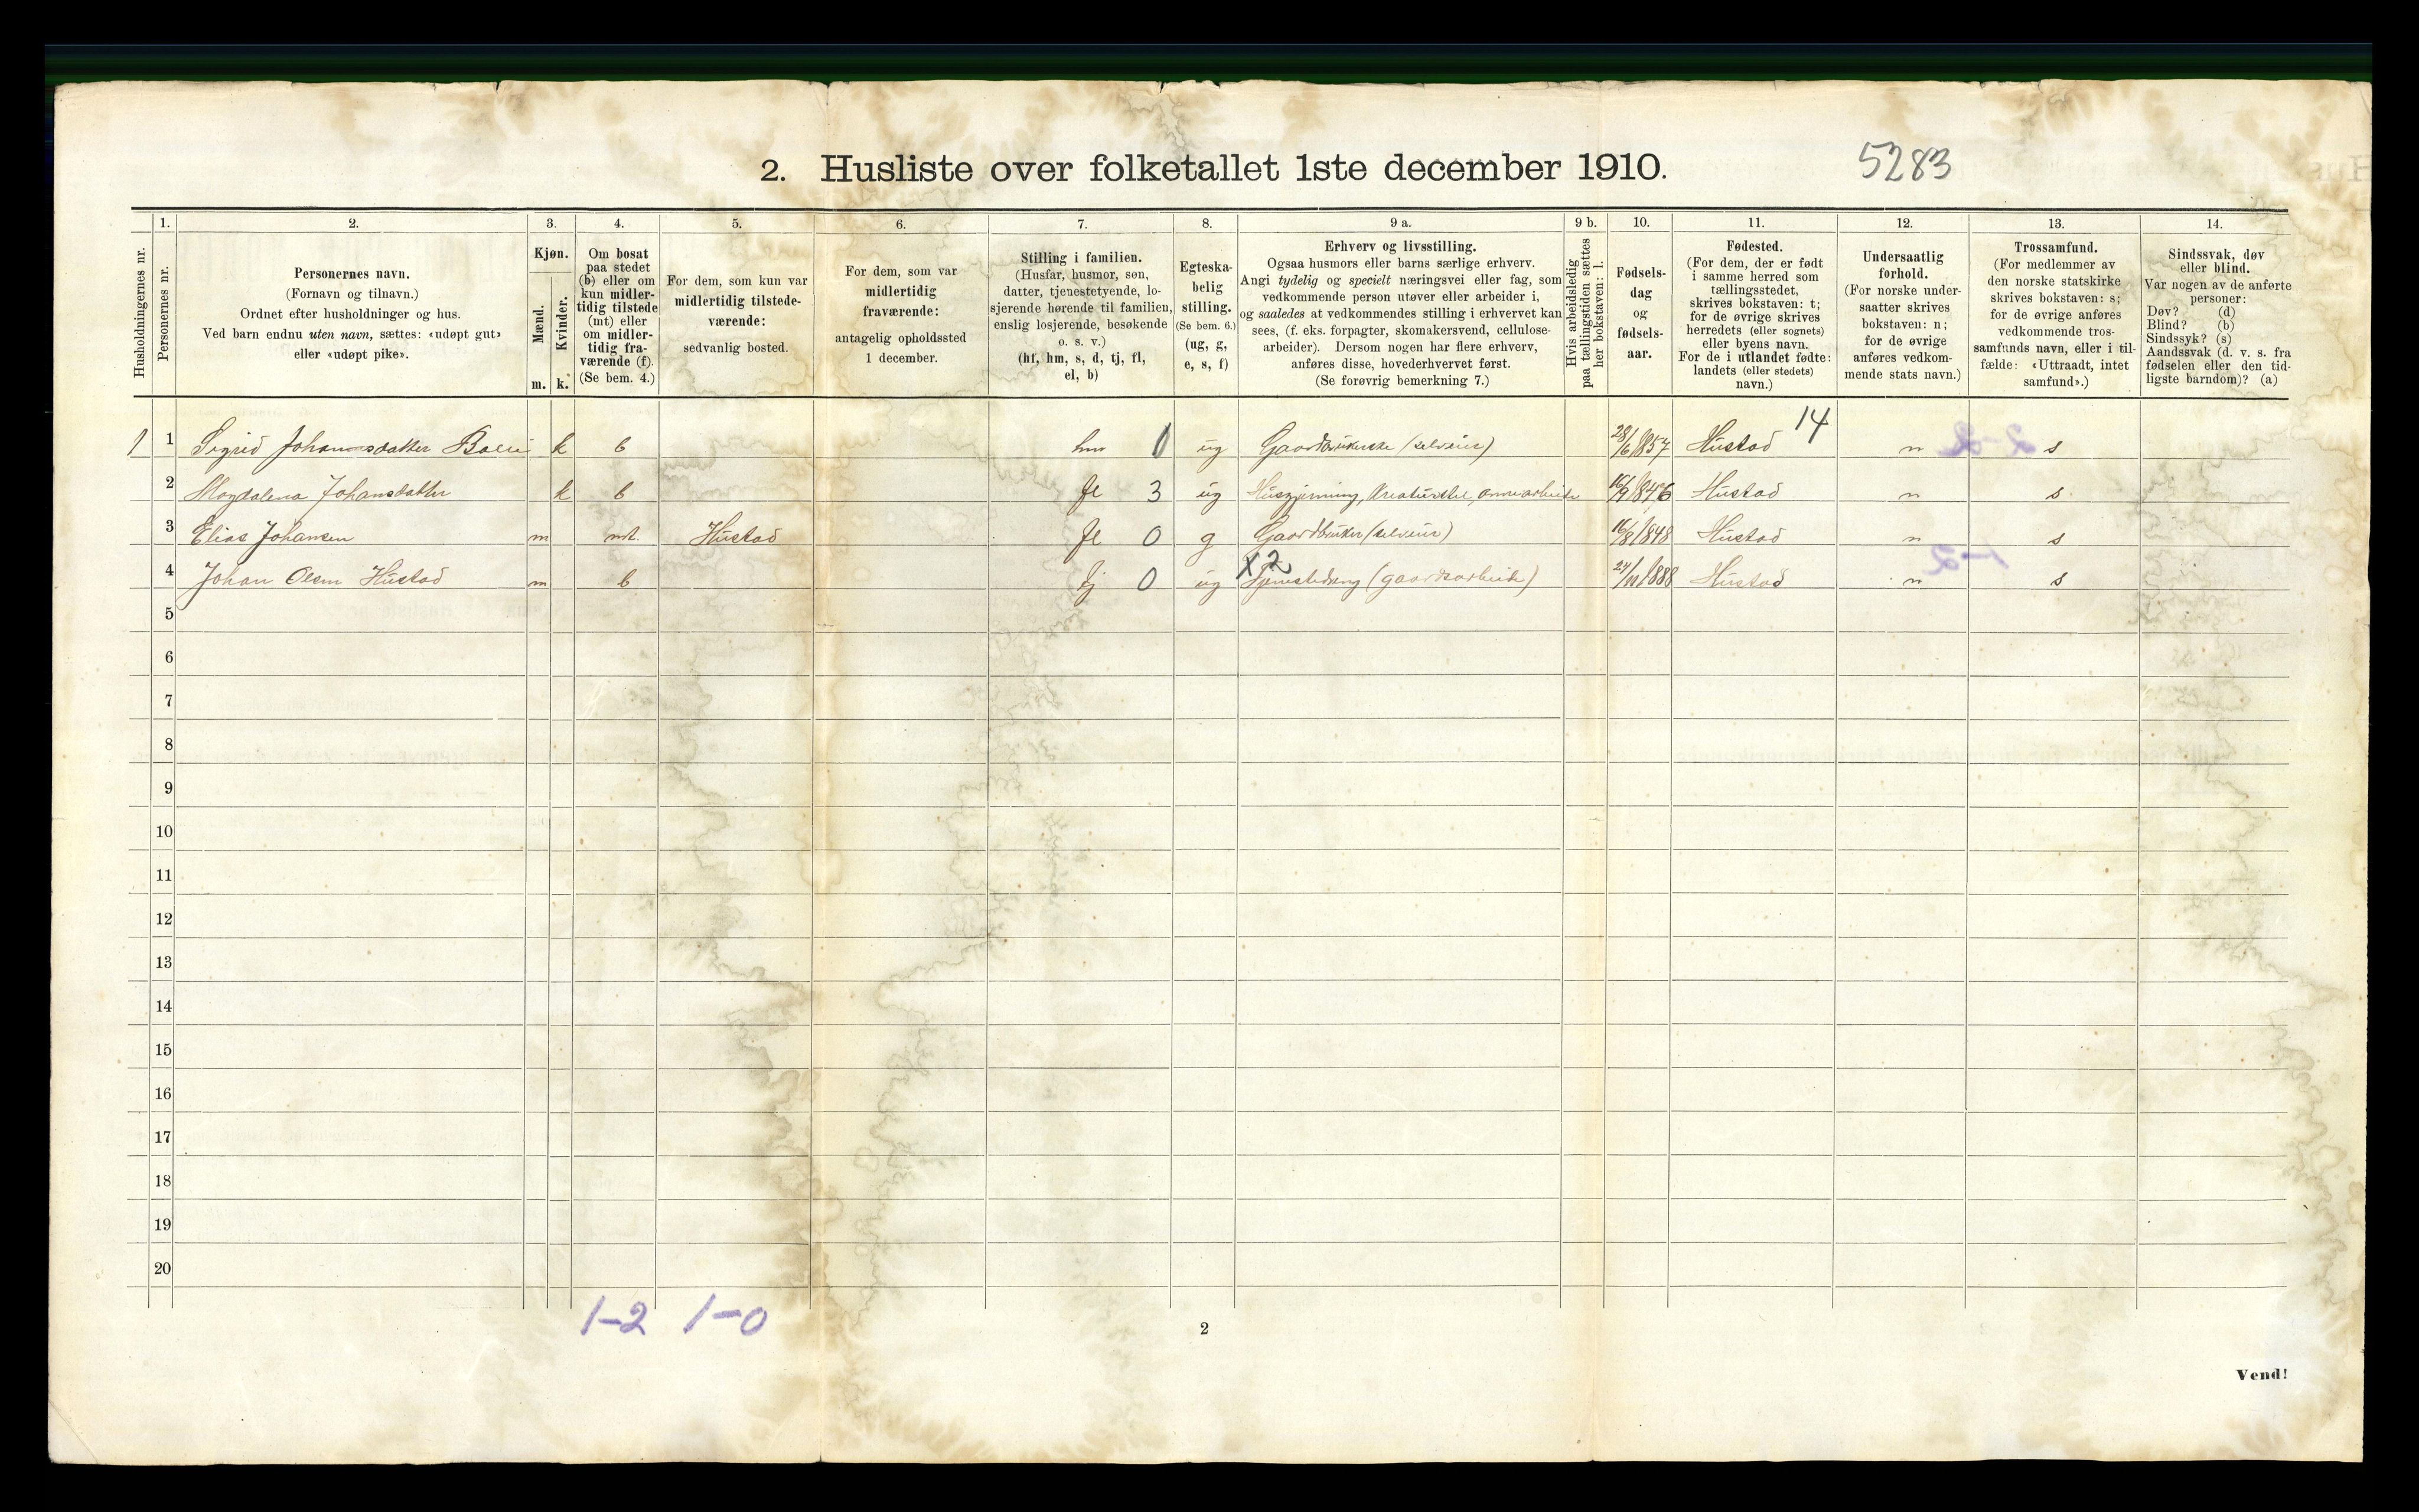 2. Husliste over folketallet 1ste december 1910. 5283
Husholdningernes nr.
1.
Personernes nr.
2.
Personernes navn.
(Fornavn og tilnavn.)
Ordnet efter husholdninger og hus.
Ved barn endnu uten navn, sættes: «udøpt gut»
eller «udøpt pike».
3.
Kjøn.
Mænd.
Kvinder.
m. k.
4.
Om bosat
paa stedet
(b) eller om
kun midler-
tidig tilstede
(mt) eller
om midler-
tidig fra-
værende (f).
(Se bem. 4.)
5.
For dem, som kun var
midlertidig tilstede-
værende:
sedvanlig bosted.
6.
For dem, som var
midlertidig
fraværende:
antagelig opholdssted
1 december.
7.
Stilling i familien.
(Husfar, husmor, søn,
datter, tjenestetyende, lo-
sjerende hørende til familien,
enslig losjerende, besøkende
o. s. v.)
(hf, hm, s, d, tj, fl,
el, b)
8.
Egteska-
belig
stilling.
(Se bem. 6.)
(ug, g,
e, s, f)
9 a.
Erhverv og livsstilling.
Ogsaa husmors eller barns særlige erhverv.
Angi tydelig og specielt næringsvei eller fag, som
vedkommende person utøver eller arbeider i,
og saaledes at vedkommendes stilling i erhvervet kan
sees, (f. eks. forpagter, skomakersvend, cellulose-
arbeider). Dersom nogen har flere erhverv,
anføres disse, hovederhvervet først.
(Se forøvrig bemerkning 7.)
9 b.
Hvis arbeidsledig
paa tællingstiden sættes
her bokstaven: l.
10.
Fødsels-
dag
og
fødsels-
aar.
11.
Fødested.
(For dem, der er født
i samme herred som
tællingsstedet,
skrives bokstaven: t;
for de øvrige skrives
herredets (eller sognets)
eller byens navn.
For de i utlandet fødte:
landets (eller stedets)
navn.)
12.
Undersaatlig
førhold.
(For norske under-
saatter skrives
bokstaven: n;
for de øvrige
anføres vedkom-
mende stats navn.)
13.
Trossamfund.
(For medlemmer av
den norske statskirke
skrives bokstaven: s;
for de øvrige anføres
vedkommende tros-
samfunds navn, eller i til-
fælde: «Uttraadt, intet
samfund».)
14.
Sindssvak, døv
eller blind.
Var nogen av de anførte
personer:
Døv? (d)
Blind? (b)
Sindssyk? (s)
Aandssvak (d. v. s. fra
fødselen eller den tid-
ligste barndom)? (a)
14
1 1 Sigrid Johansdatter k b hm ug Gaardbrukerske (selveier) 28/6 1857 Hustad n s
2 Magdalena Johansdatter k b fl 3 ug Husgjerning, kreaturstel, 16/9 1846 Hustad n s
3 Elias Johansen m mt. Hustad fl 0 g Gaardbruker (selveier) 16/8 1848 Hustad n s
X2
4 Johan Olsen Hustad m b tj 0 ug Tjenestedreng (gaardsarbeide) 24/11 1888 Hustad n s
5
6
7
8
9
10
11
12
13
14
15
16
17
18
19
20
1-2 1-0
2
Vend!